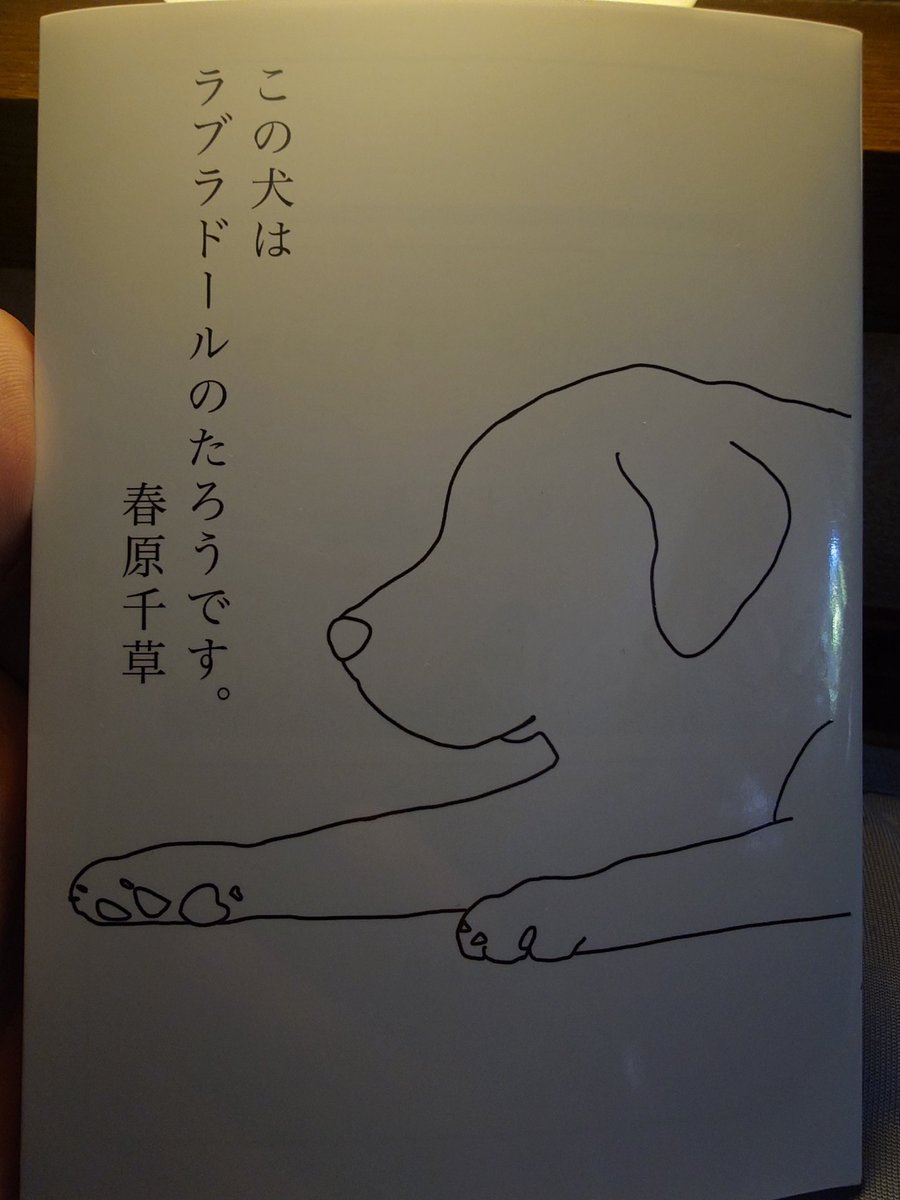 この犬は
ラブラドールのたろうです。
春原千草